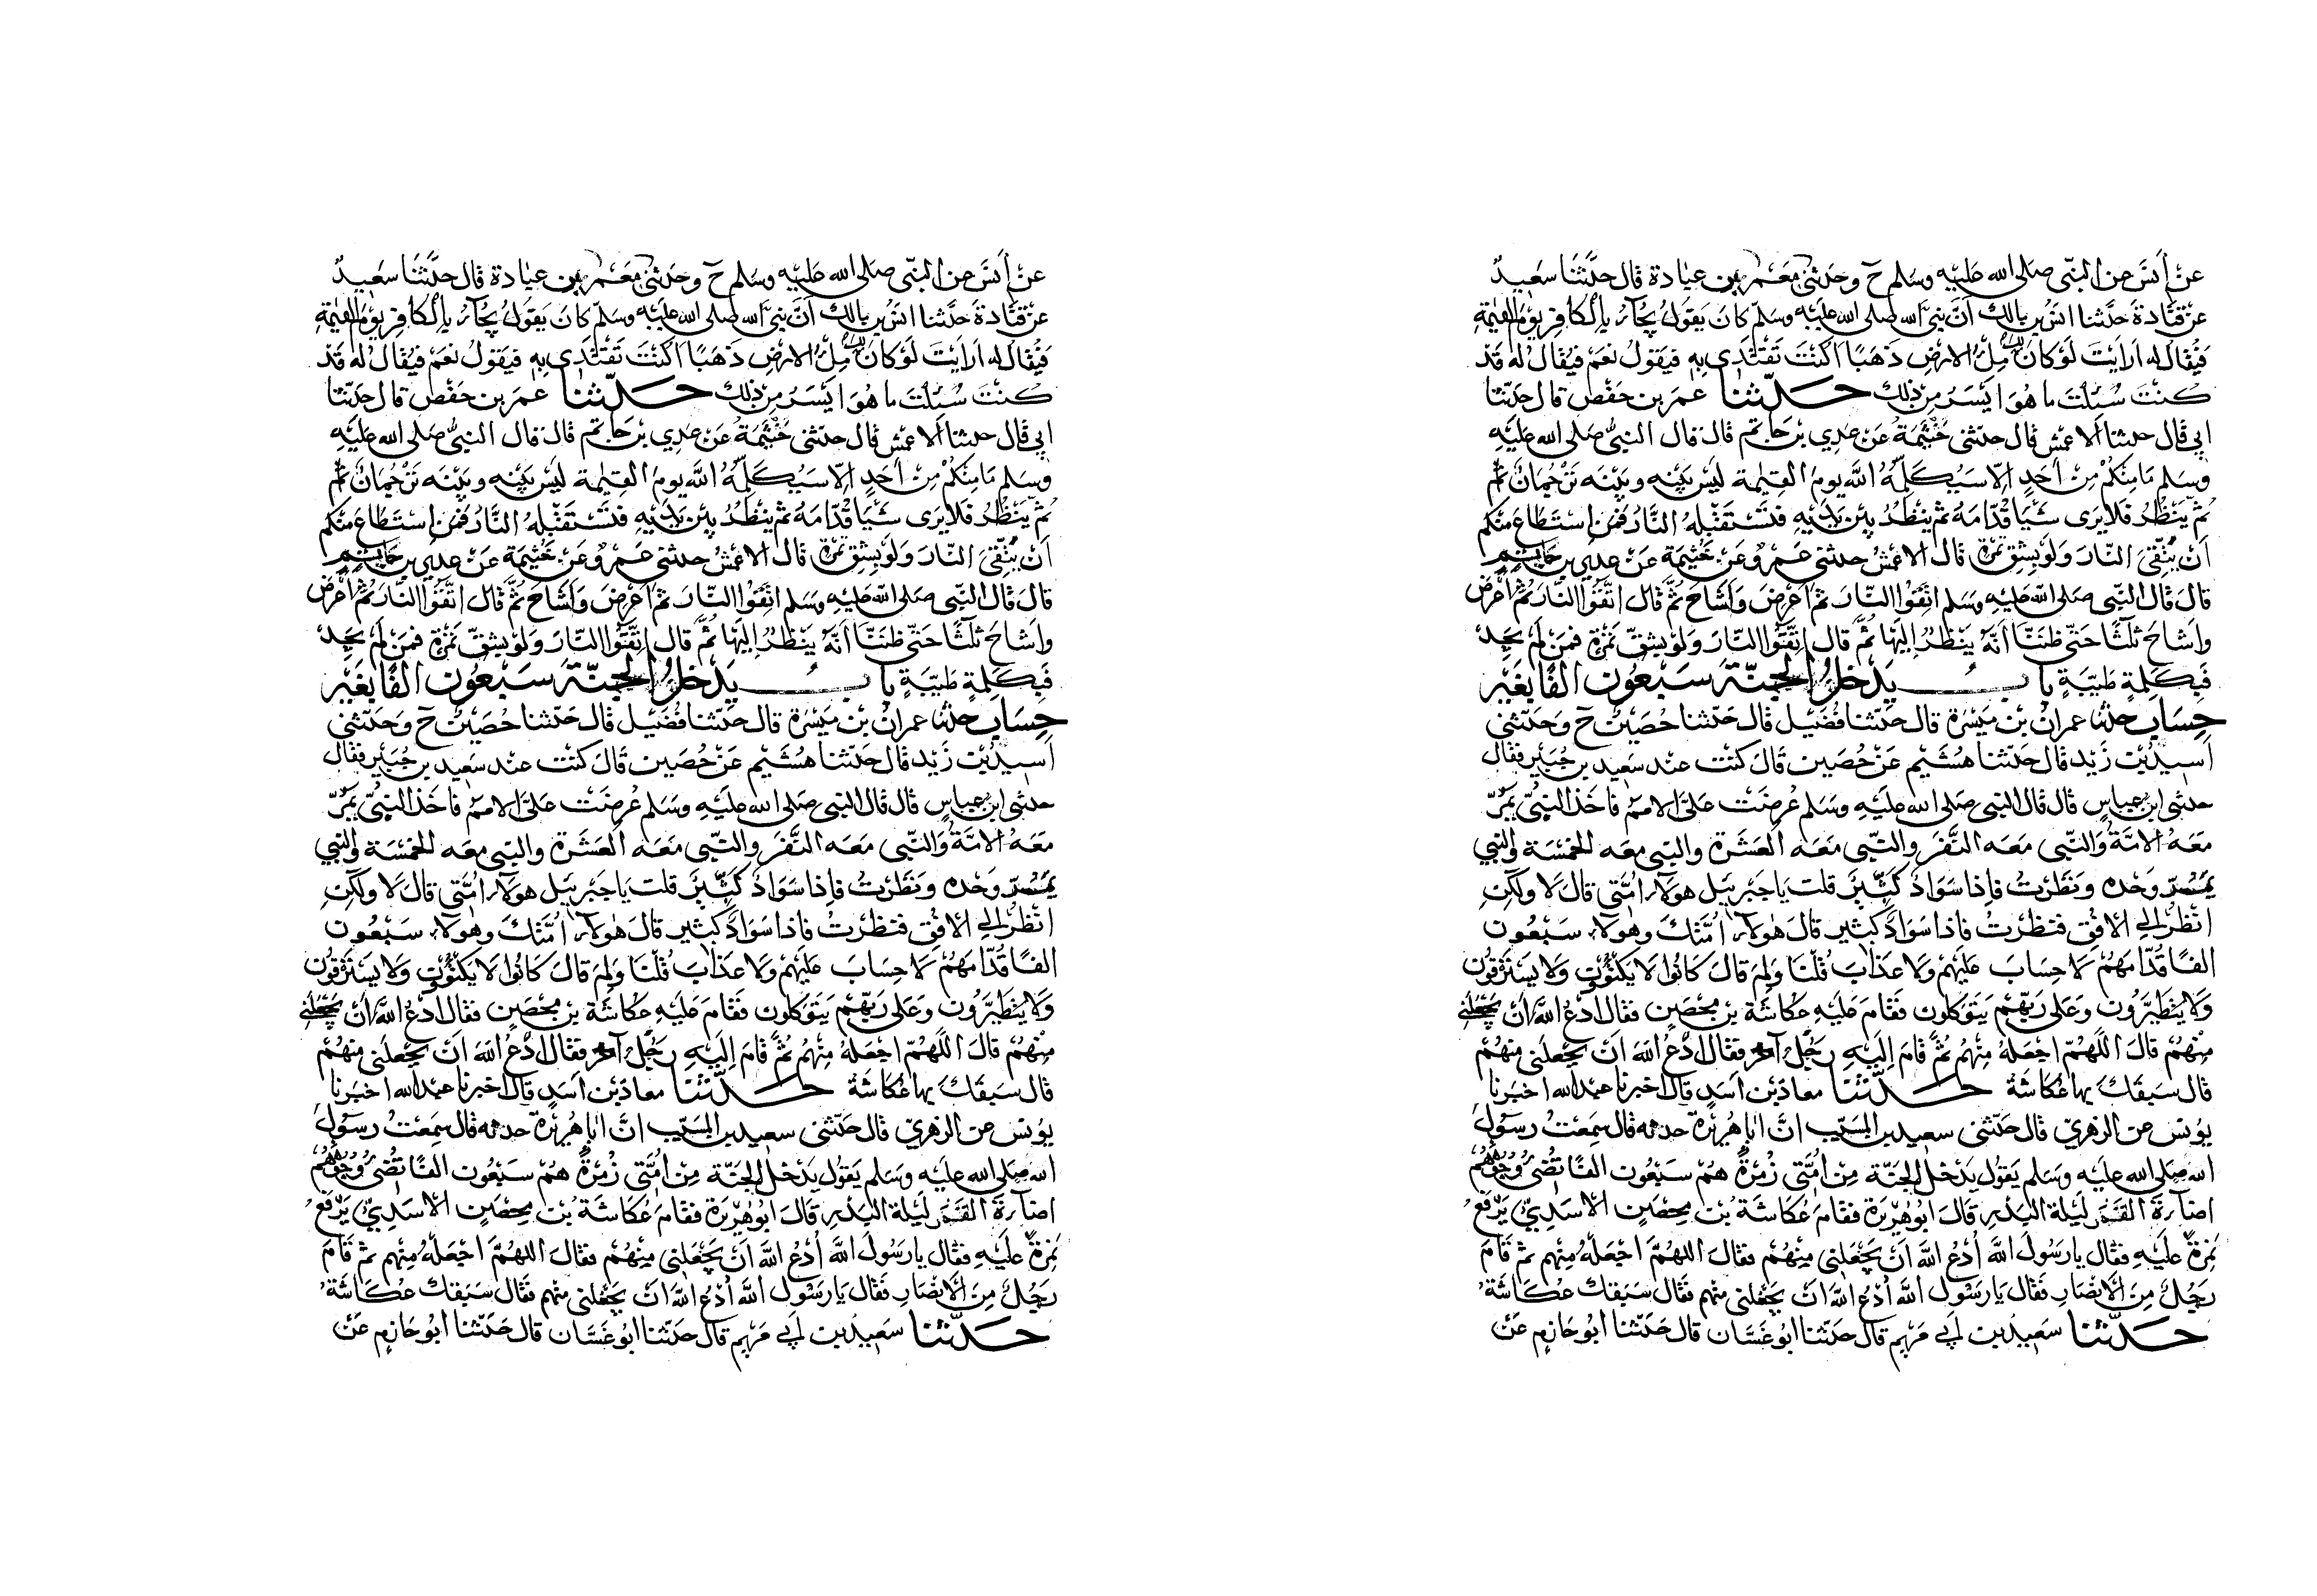 عَنْ أَنَسٍ عن النبّى صَلى الله عَليْه وسَلم حَ وحَدثنى مَعْمَر بن عبادة قال حدَّثنَا سَعِيدٌ
عَنْ قَتَادةَ حَدَّثنا انسُ بن مالك اَنَّ نبىَّ الله صَلى الله عَليْه وسَلّم كانَ يَقولُ يُجَآءُ بالْكافِر يَوْمَ القيٰمةِ
فيُقالُ له اَرَايْتَ لَوْ كانَ لكَ مِلْءُ الارْضِ ذَهَبًا اَكُنْتَ تَفْتَدِى بِهِ فيَقولُ نعَمْ فيُقالُ لهُ قَدْ
كُنْتَ سُئِلْتَ ما هُوَ ايْسَرُ مِنْ ذلك حَدّثنا عمَر بن حَفْصٍ قال حَدّثنا
ابى قال حدثنا الاعمش قال حدّثنى خَيْثَمَةُ عَنْ عَدِي بن حَاتم قال قال النبىُّ صَلى الله عَليْهِ
وسَلم مَا مِنْكُمْ مِنْ اَحَدٍ اِلّا سَيُكَلِّمُهُ اللهُ يومَ القيٰمة ليْسَ بَيْنه وبَيْنَه تَرْجُمانٌ ثمّ
ثمّ يَنْظُرُ فَلا يَرى شَيْئًا قُدّامَهُ ثم ينظُرُ بين يَدَيْهِ فتَسْتقْبِلُهُ النَّارُ فمَن اسْتطَاعَ منكم
اَنْ يَتَّقِىَ النّارَ وَلَوْ بِشِقِّ تمرةٍ قال الاعمشُ حدثنى عَمرٌو عَنْ خَيْثمَةَ عَنْ عدِيّ بن حَاتِمٍ
قال قال النّبى صَلى اللهُ عَليْهِ وسَلم اتَّقُوا النّارَ ثمّ اَعْرَضَ وَاَشَاحَ ثُمَّ قال اتَّقُوا النّارَ ثمّ اَعْرَضَ
واَشاحَ ثلَاثًا حَتّى ظَنَنّا اَنّهُ يَنْظُرُ اِلَيْهَا ثُمَّ قال اِتَّقُوا النّارَ وَلَوْ بِشِقِّ تَمْرةٍ فمَنْ لَمْ يَجِدْ
فَبِكَلِمَةٍ طَيّبَةٍ بابٌ يَدْخُلُ الْجَنّةَ سَبْعُوْنَ الفًا بِغَيْرِ
حِسَابٍ حدثنا عمرانُ بْن مَيْسَرة قال حَدّثنا فُضَيْل قال حَدّثنا حُصَيْن حَ وَحَدّثنى
اَسيْدُ بْن زَيْد قال حَدّثنا هُشَيْم عَنْ حُصَين قَالَ كُنْت عند سَعِيد بن جُبَيْرٍ فقال
حدثنى ابنُ عباسٍ قال قال النبى صَلى الله عليْهِ وسَلم عُرِضَتْ عَلىَّ الاممُ فاَخَذ النّبىُّ يَمُرّ
مَعَهُ الامَّةُ وَالنّبى مَعَه النَّفَر والنّبى مَعَه العَشَرَة والنبى معَه الخمْسَة والنبى
يَمُرّ وَحْده ونَظرْتُ فاِذا سَوَادٌ كَثيْرٌ قلت يَا جَبْرَئيل هولآءِ اُمّتى قالَ لَا ولَكِنِ
انْظُرْ الى الافُقِ فنظرْتُ فاذا سَوَادٌ كثير قالَ هٰولآءِ اُمّتُكَ وهولآءِ سَبْعُون
الفًا قُدّامَهُمْ لَا حِسَابَ عَليْهِمْ وَلا عَذَابَ قُلْتُ وَلِمَ قالَ كَانُوا لَا يَكْتَوُونَ وَلا يَسْتَرْقُونَ
وَلَا يَتَطَيّرُون وعَلى رَبّهِمْ يَتَوَكّلون فَقَامَ اليْهِ عُكاشَة بن مِحْصَنٍ فقال ادْعُ اللهَ اَنْ يَجْعَلَنى
مِنْهُمْ قالَ اللّهُمَّ اجْعَلهُ مِنْهُمْ ثُمَّ قامَ اِلَيْهِ رَجُلٌ آخر فقال ادْعُ اللهَ اَنْ يَجْعَلَنى مِنْهُمْ
قال سَبَقَكَ بهَا عُكاشَةُ حَدّثنَا معاذ بْن اَسَدٍ قالَ اخبرنا عبد الله اخبَرنا
يوُنس عن الزهرىّ قال حَدّثنى سعِيد بن المسَيّب انّ ابا هُرَيْرَة حدثه قال سَمِعْتُ رسُولَ
الله صَلى الله عليْه وسَلم يَقولُ يَدْخل الجَنّة مِنْ اُمّتى زُمْرَةٌ هُمْ سَبْعُون الفًا تُضِئُ وُجُوْهُهُمْ
اِضَآءَةَ القَمَر ليْلَة البَدْرِ قالَ ابوُ هُرَيْرَة فقَامَ عُكاشَة بْن مِحْصَنٍ الاسَدِىُّ يَرْفَعُ
نَمِرةً عَليْهِ فقال يا رسُولَ اللهِ اُدْعُ اللهَ اَنْ يَجْعَلنى مِنْهُمْ فقالَ اللهُمَّ اجْعَلْهُ مِنْهم ثمّ قَامَ
رَجُلٌ مِنَ الْاَنصَارِ فَقال يَا رسُول اللهِ اُدْعُ اللهَ اَنْ يَجْعَلنى منهم فقَال سَبَقك عُكَاشَةُ
حَدّثنا سَعِيدُ بن اَبى مَرْيم قال حَدّثنا ابوُ غَسَّان قال حَدّثنا ابوُ حَازِمٍ عَنْ
عَنْ أَنَسٍ عن النبّى صَلى الله عَليْه وسَلم حَ وحَدثنى مَعْمَر بن عبادة قال حدَّثنَا سَعِيدٌ
عَنْ قَتَادةَ حَدَّثنا انسُ بن مالك اَنَّ نبىَّ الله صَلى الله عَليْه وسَلّم كانَ يَقولُ يُجَآءُ بالْكافِر يَوْمَ القيٰمةِ
فيُقالُ له اَرَايْتَ لَوْ كانَ لكَ مِلْءُ الارْضِ ذَهَبًا اَكُنْتَ تَفْتَدِى بِهِ فيَقولُ نعَمْ فيُقالُ لهُ قَدْ
كُنْتَ سُئِلْتَ ما هُوَ ايْسَرُ مِنْ ذلك حَدّثنا عمَر بن حَفْصٍ قال حَدّثنا
ابى قال حدثنا الاعمش قال حدّثنى خَيْثَمَةُ عَنْ عَدِي بن حَاتم قال قال النبىُّ صَلى الله عَليْهِ
وسَلم مَا مِنْكُمْ مِنْ اَحَدٍ اِلّا سَيُكَلِّمُهُ اللهُ يومَ القيٰمة ليْسَ بَيْنه وبَيْنَه تَرْجُمانٌ ثمّ
ثمّ يَنْظُرُ فَلا يَرى شَيْئًا قُدّامَهُ ثم ينظُرُ بين يَدَيْهِ فتَسْتقْبِلُهُ النَّارُ فمَن اسْتطَاعَ منكم
اَنْ يَتَّقِىَ النّارَ وَلَوْ بِشِقِّ تمرةٍ قال الاعمشُ حدثنى عَمرٌو عَنْ خَيْثمَةَ عَنْ عدِيّ بن حَاتِمٍ
قال قال النّبى صَلى اللهُ عَليْهِ وسَلم اتَّقُوا النّارَ ثمّ اَعْرَضَ وَاَشَاحَ ثُمَّ قال اتَّقُوا النّارَ ثمّ اَعْرَضَ
واَشاحَ ثلَاثًا حَتّى ظَنَنّا اَنّهُ يَنْظُرُ اِلَيْهَا ثُمَّ قال اِتَّقُوا النّارَ وَلَوْ بِشِقِّ تَمْرةٍ فمَنْ لَمْ يَجِدْ
فَبِكَلِمَةٍ طَيّبَةٍ بابٌ يَدْخُلُ الْجَنّةَ سَبْعُوْنَ الفًا بِغَيْرِ
حِسَابٍ حدثنا عمرانُ بْن مَيْسَرة قال حَدّثنا فُضَيْل قال حَدّثنا حُصَيْن حَ وَحَدّثنى
اَسيْدُ بْن زَيْد قال حَدّثنا هُشَيْم عَنْ حُصَين قَالَ كُنْت عند سَعِيد بن جُبَيْرٍ فقال
حدثنى ابنُ عباسٍ قال قال النبى صَلى الله عليْهِ وسَلم عُرِضَتْ عَلىَّ الاممُ فاَخَذ النّبىُّ يَمُرّ
مَعَهُ الامَّةُ وَالنّبى مَعَه النَّفَر والنّبى مَعَه العَشَرَة والنبى معَه الخمْسَة والنبى
يَمُرّ وَحْده ونَظرْتُ فاِذا سَوَادٌ كَثيْرٌ قلت يَا جَبْرَئيل هولآءِ اُمّتى قالَ لَا ولَكِنِ
انْظُرْ الى الافُقِ فنظرْتُ فاذا سَوَادٌ كثير قالَ هٰولآءِ اُمّتُكَ وهولآءِ سَبْعُون
الفًا قُدّامَهُمْ لَا حِسَابَ عَليْهِمْ وَلا عَذَابَ قُلْتُ وَلِمَ قالَ كَانُوا لَا يَكْتَوُونَ وَلا يَسْتَرْقُونَ
وَلَا يَتَطَيّرُون وعَلى رَبّهِمْ يَتَوَكّلون فَقَامَ اليْهِ عُكاشَة بن مِحْصَنٍ فقال ادْعُ اللهَ اَنْ يَجْعَلَنى
مِنْهُمْ قالَ اللّهُمَّ اجْعَلهُ مِنْهُمْ ثُمَّ قامَ اِلَيْهِ رَجُلٌ آخر فقال ادْعُ اللهَ اَنْ يَجْعَلَنى مِنْهُمْ
قال سَبَقَكَ بهَا عُكاشَةُ حَدّثنَا معاذ بْن اَسَدٍ قالَ اخبرنا عبد الله اخبَرنا
يوُنس عن الزهرىّ قال حَدّثنى سعِيد بن المسَيّب انّ ابا هُرَيْرَة حدثه قال سَمِعْتُ رسُولَ
الله صَلى الله عليْه وسَلم يَقولُ يَدْخل الجَنّة مِنْ اُمّتى زُمْرَةٌ هُمْ سَبْعُون الفًا تُضِئُ وُجُوْهُهُمْ
اِضَآءَةَ القَمَر ليْلَة البَدْرِ قالَ ابوُ هُرَيْرَة فقَامَ عُكاشَة بْن مِحْصَنٍ الاسَدِىُّ يَرْفَعُ
نَمِرةً عَليْهِ فقال يا رسُولَ اللهِ اُدْعُ اللهَ اَنْ يَجْعَلنى مِنْهُمْ فقالَ اللهُمَّ اجْعَلْهُ مِنْهم ثمّ قَامَ
رَجُلٌ مِنَ الْاَنصَارِ فَقال يَا رسُول اللهِ اُدْعُ اللهَ اَنْ يَجْعَلنى منهم فقَال سَبَقك عُكَاشَةُ
حَدّثنا سَعِيدُ بن اَبى مَرْيم قال حَدّثنا ابوُ غَسَّان قال حَدّثنا ابوُ حَازِمٍ عَنْ